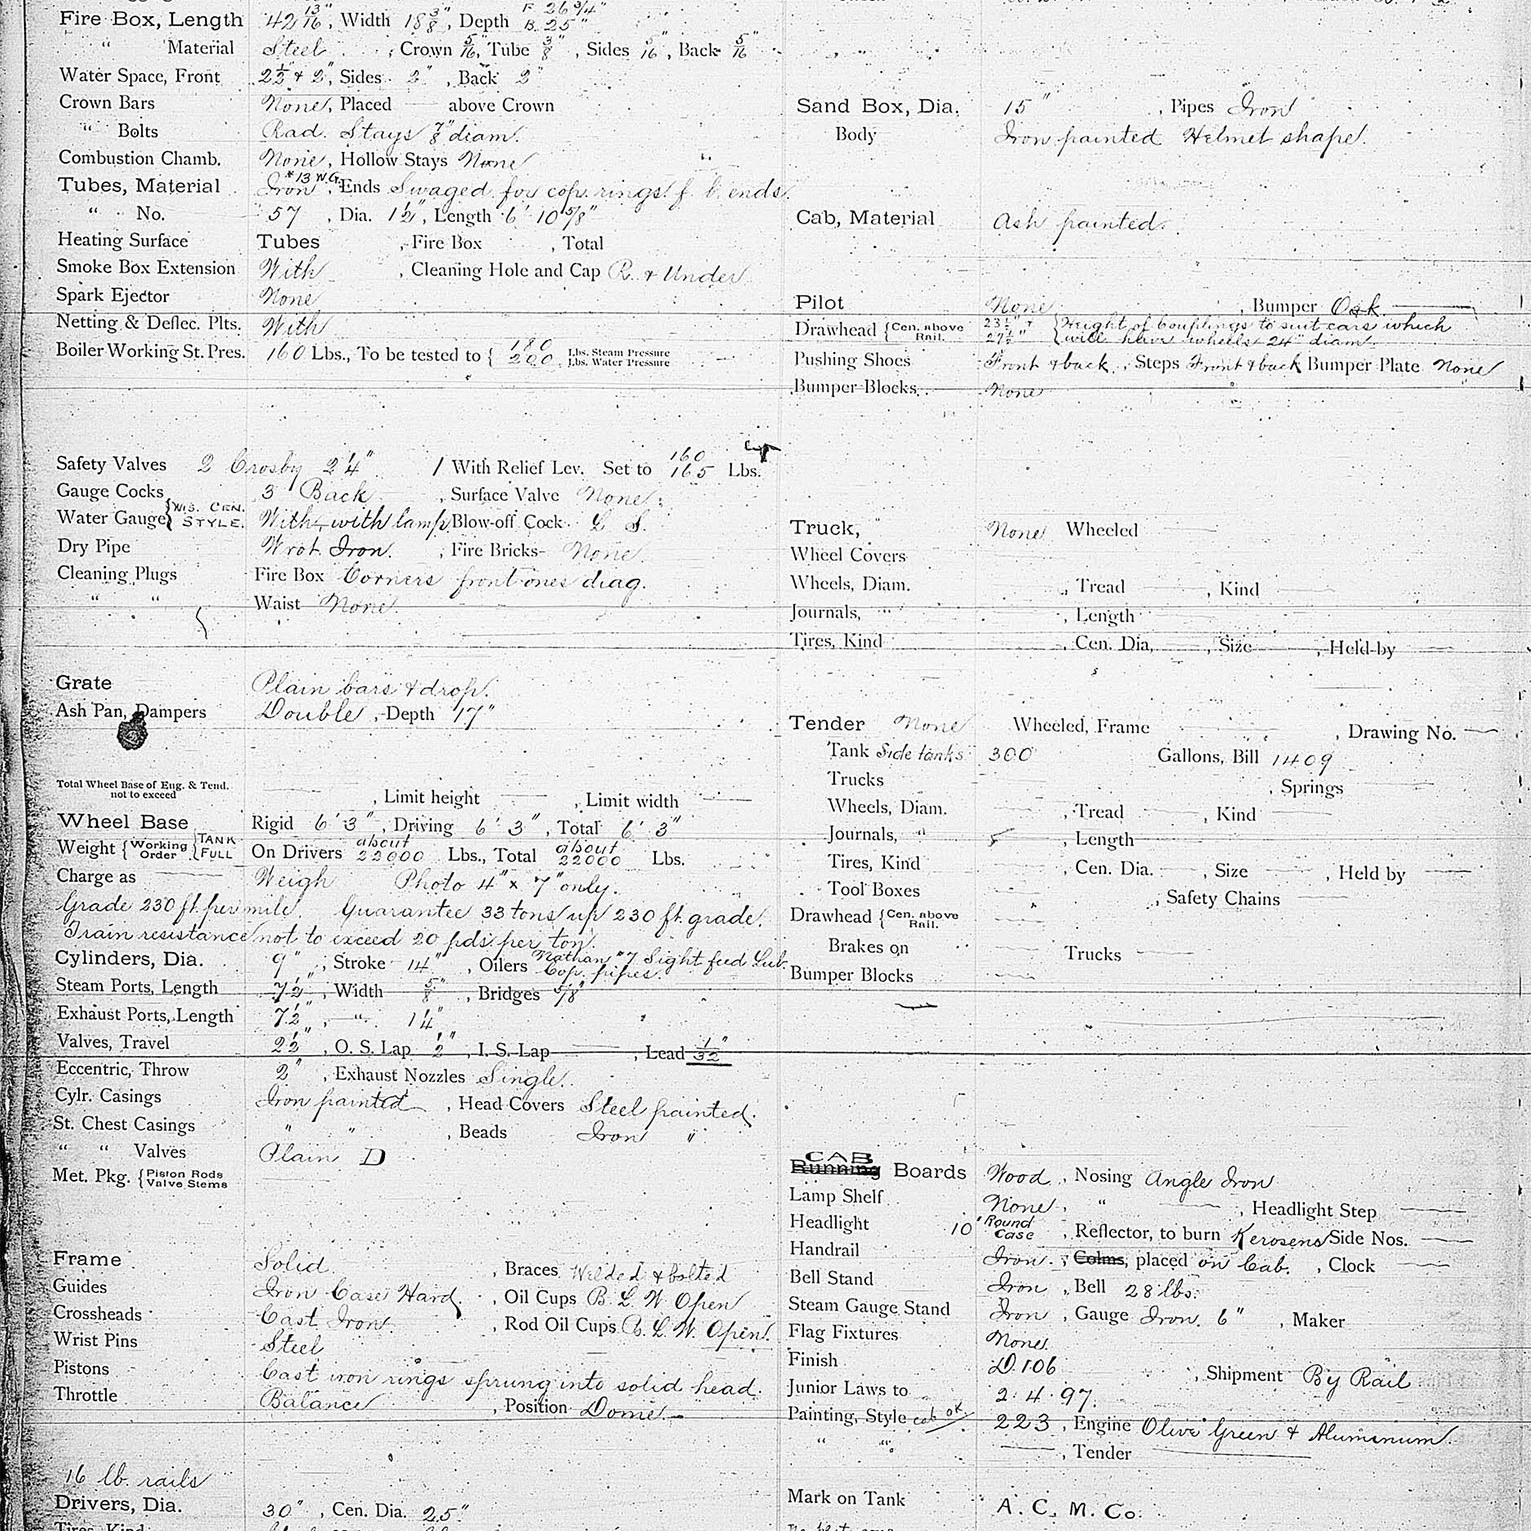 Fire Box, Length 42 13/16", Width 18 3/8", Depth F. 26 3/4" B. 25"
" Material Steel, Crown 5/16", Tube 3/8", Sides 5/16", Back 5/16"
Water Space, Front 2 1/2" & 2", Sides 2", Back 2"
Crown Bars None, Placed — above Crown
" Bolts Rad. Stays 7/8" diam.
Combustion Chamb. None, Hollow Stays None
Tubes, Material Iron #13 W.G., Ends Swaged for cop. rings f. b. ends.
" No. 57, Dia. 1 1/2", Length 6' 10 5/8"
Heating Surface Tubes , Fire Box , Total
Smoke Box Extension With , Cleaning Hole and Cap R. & Under
Spark Ejector None
Netting & Deflec. Plts. With
Boiler Working St. Pres. 160 Lbs., To be tested to { 180 Lbs. Steam Pressure 200 Lbs. Water Pressure
Safety Valves 2 Crosby 2 1/4" 1 With Relief Lev. Set to 160 165 Lbs.
Gauge Cocks 3 Back , Surface Valve None
Water Gauge { Wis. Cen. Style. With, with lamp, Blow-off Cock L. S.
Dry Pipe Wrot. Iron. , Fire Bricks None
Cleaning Plugs Fire Box Corners front ones diag.
" " Waist None.
Grate Plain bars & drop.
Ash Pan, Dampers Double, Depth 17"
Total Wheel Base of Eng. & Tend. not to exceed — , Limit height — , Limit width —
Wheel Base Rigid 6' 3", Driving 6' 3", Total 6' 3"
Weight { Working Order { Tank Full On Drivers about 22000 Lbs., Total about 22000 Lbs.
Charge as — Weigh Photo 4" x 7" only.
Grade 230 ft. per mile. Guarantee 33 tons up 230 ft. grade.
Train resistance not to exceed 20 pds. per ton.
Cylinders, Dia. 9", Stroke 14", Oilers Nathan #7 Sight feed Lub. Cop. pipes.
Steam Ports, Length 7 1/2", Width 5/8", Bridges 5/8"
Exhaust Ports, Length 7 1/2", " 1 1/4"
Valves, Travel 2 1/2", O. S. Lap 1/2", I. S. Lap — , Lead 1/32"
Eccentric, Throw 2", Exhaust Nozzles Single.
Cylr. Casings Iron painted , Head Covers Steel painted.
St. Chest Casings " " , Beads Iron "
" " Valves Plain D
Met. Pkg. { Piston Rods Valve Stems —
Frame Solid. , Braces Welded & bolted
Guides Iron Case Hard. , Oil Cups B. L. W. Open
Crossheads Cast Iron. , Rod Oil Cups B. L. W. Open.
Wrist Pins Steel
Pistons Cast iron rings sprung into solid head.
Throttle Balance , Position Dome.
16 lb. rails
Drivers, Dia. 30", Cen. Dia. 25".
Tires, Kind
Sand Box, Dia. 15" , Pipes Iron
Body Iron painted Helmet shape.
Cab, Material Ash painted.
Pilot None , Bumper Oak
Drawhead { Cen. above Rail. 23 1/2" & 27 1/2" { Height of couplings to suit cars which will have wheels 24" diam.
Pushing Shoes Front & back , Steps Front & back Bumper Plate None
Bumper Blocks None
Truck, None Wheeled —
Wheel Covers
Wheels, Diam. , Tread — , Kind —
Journals, " , Length —
Tires, Kind , Cen. Dia. — , Size — , Held by —
Tender None Wheeled, Frame — , Drawing No. —
Tank Side tanks 300 Gallons, Bill 1409
Trucks — , Springs —
Wheels, Diam. — , Tread — , Kind —
Journals, " , Length —
Tires, Kind — , Cen. Dia. — , Size — , Held by —
Tool Boxes — , Safety Chains —
Drawhead { Cen. above Rail. —
Brakes on — Trucks —
Bumper Blocks —
CAB
Running Boards Wood , Nosing Angle Iron
Lamp Shelf None , " — , Headlight Step —
Headlight 10" Round Case , Reflector, to burn Kerosene Side Nos. —
Handrail Iron , Colms, placed on Cab. , Clock —
Bell Stand Iron , Bell 28 lbs.
Steam Gauge Stand Iron , Gauge Iron 6" , Maker
Flag Fixtures None
Finish D. 106 , Shipment By Rail
Junior Laws to 2. 4. 97.
Painting, Style cab ok. 223 , Engine Olive Green & Aluminum.
" " — , Tender —
Mark on Tank A. C. M. Co.